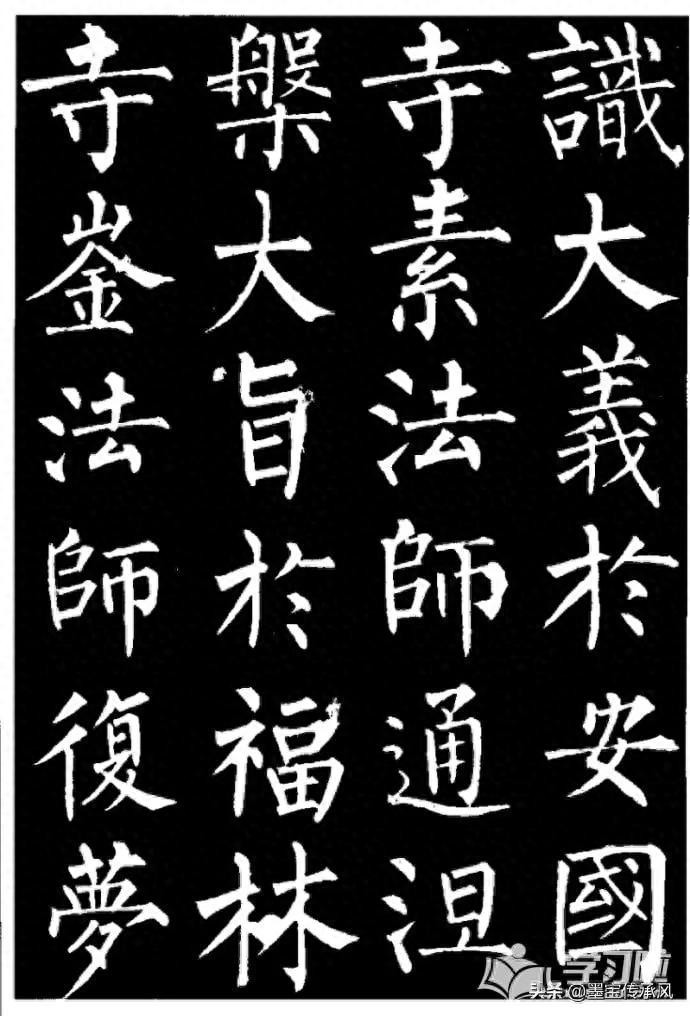 識大義於安國
寺素法師通涅
槃大旨於福林
寺崟法師復夢
学习啦
头条@墨宝传承风